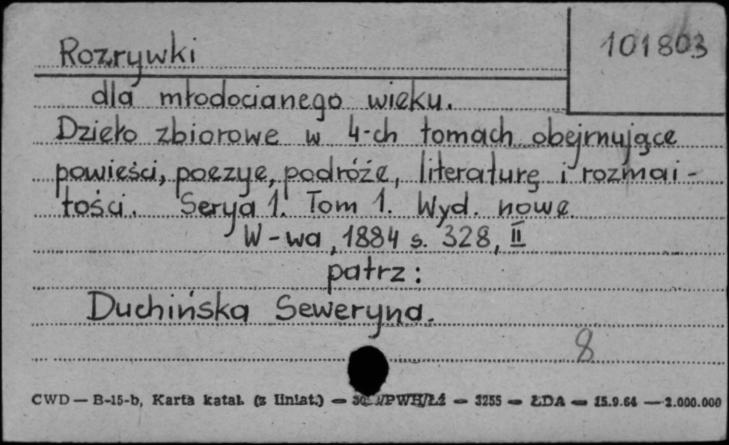 Rozrywki
101803
dla młodocianego wieku.
Dzieło zbiorowe w 4-ch tomach obejmujące
powieści, poezye, podróże, literaturę i rozmai-
tości. Serya 1. Tom 1. Wyd. nowe
W-wa, 1884 s. 328, II
patrz:
Duchińska Seweryna.
8
CWD — B-15-b, Karta katal. (z liniat.) — PWH/Łż — 3255 — ŁDA — 15.9.64 — 2.000.000